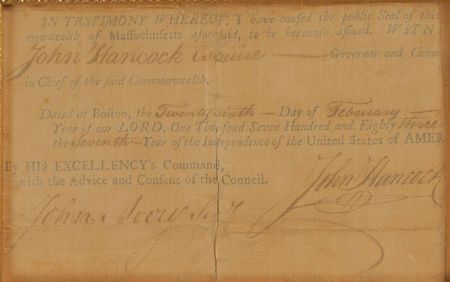 IN TESTIMONY WHEREOF, I have caused the public Seal of this
monwealth of Massachusetts aforesaid, to be hereunto affixed. WITN
John Hancock Esquire Governor and Comm
in Chief of the said Commonwealth.
Dated at Boston, the Twenty sixth Day of February
Year of our LORD, One Thousand Seven Hundred and Eighty three
the Seventh Year of the Independence of the United States of AMER
By HIS EXCELLENCY's Command,
with the Advice and Consent of the Council.
John Hancock
John Avery Secy